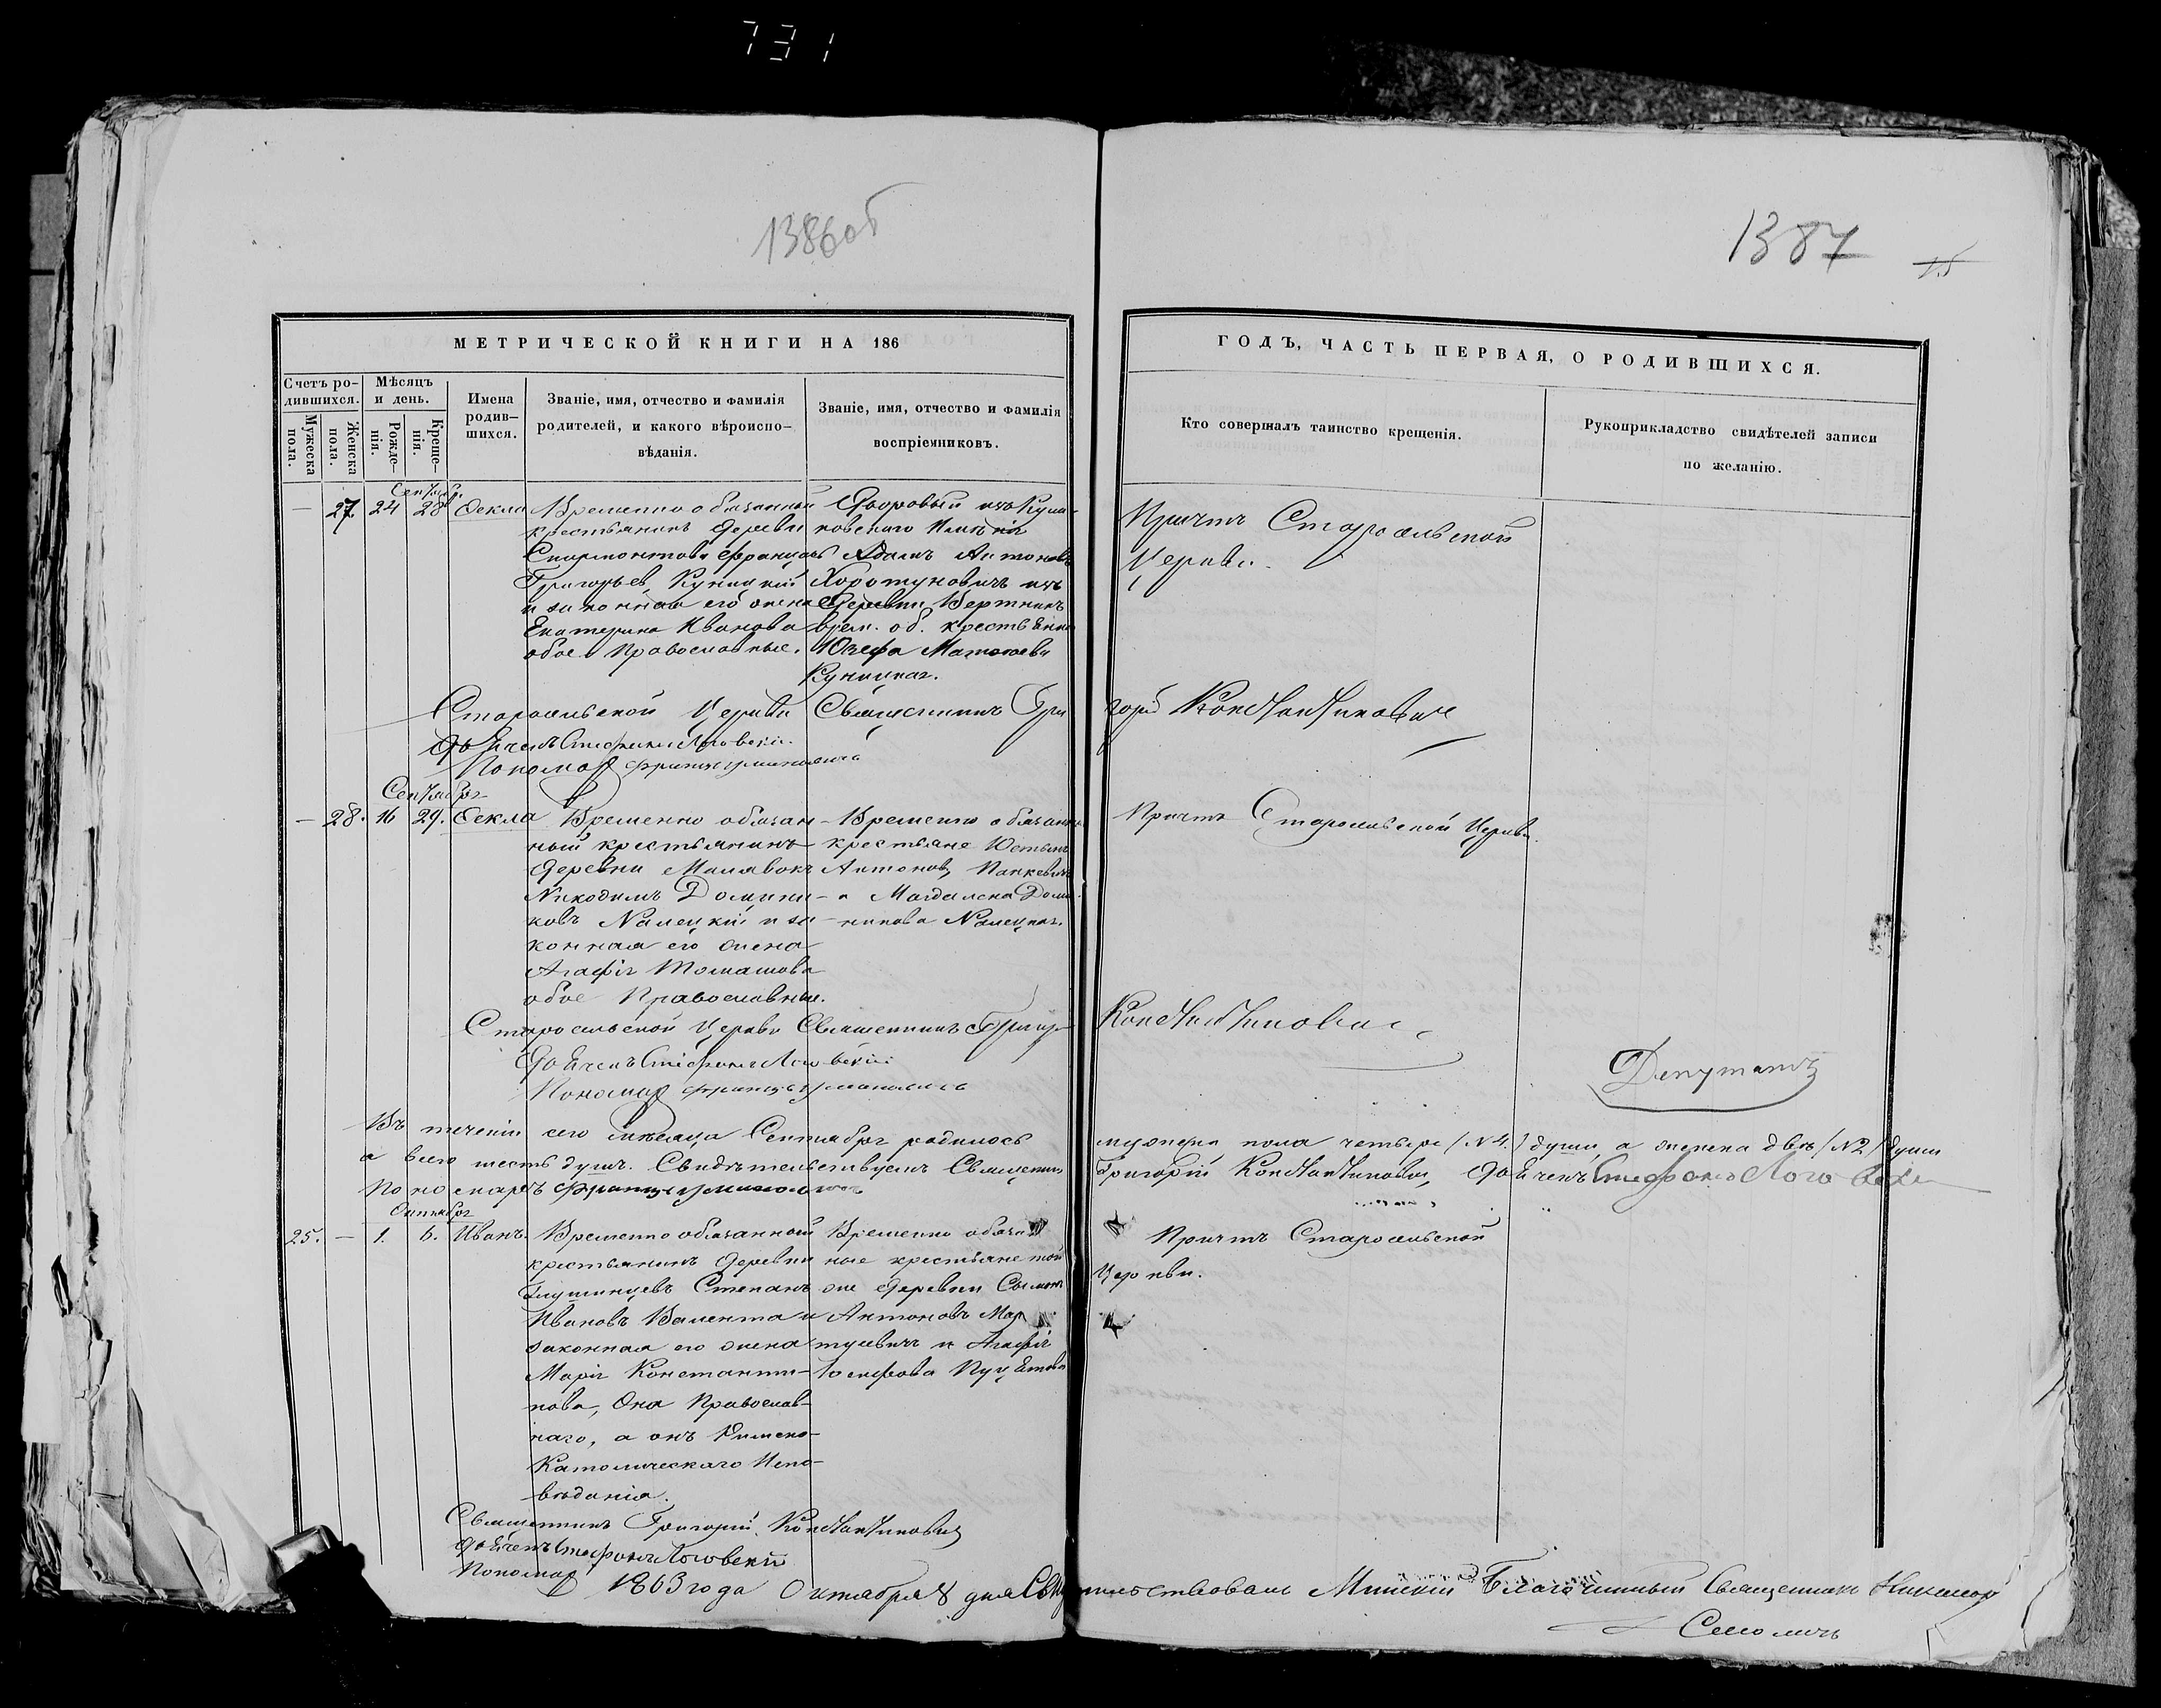 731
1386об
1387
15
МЕТРИЧЕСКОЙ КНИГИ НА 186
ГОДЪ, ЧАСТЬ ПЕРВАЯ, О РОДИВШИХСЯ.
Счетъ ро-
дившихся.
Мужеска
пола.
Женска
пола.
Мѣсяцъ
и день.
Рожде-
нія.
Креще-
нія.
Имена
родив-
шихся.
Званіе, имя, отчество и фамилія
родителей, и какого вѣроиспо-
вѣданія.
Званіе, имя, отчество и фамилія
воспріемниковъ.
Кто совершалъ таинство крещенія.
Рукоприкладство свидѣтелей записи
по желанію.
Сентябр.
— 27 24 28 Ѳекла
Временно обязанный
крестьянинъ деревни
Францъ
Григорьев, Куницкій
и законная его жена
Екатерина Иванова
обое Православные.
Дворовый изъ
новскаго Имѣнія
Адамъ Антоновъ
Хоротуновичъ изъ
деревни Вертникъ
врем. об. крестьянка
Юзефа Матѳеева
Куницкая.
Причтъ Старосельской
Церкви.
Старосельской Церкви Священникъ Гри
горій Константиновичъ
Дьячекъ Стефанъ Логовскій
Пономар Францъ
Сентября
— 28. 16 29. Ѳекла
Временно обязан-
ный крестьянинъ
деревни Малявокъ
Никодимъ Домини-
ковъ Налецкій и за-
конная его жена
Агафія Томашова
обое Православные.
Временно обязан
крестьяне Юстынъ
Антоновъ Панкевичъ
и Магдалена Доми-
никова Налецкая.
Причтъ Старосельской Церкви.
Старосельской Церкви Священникъ Григор
Константинович
Дьячекъ Стефанъ Логовскій
Пономар Францъ
Депутатъ
Въ теченіи сего мѣсяца Сентября родилось
мужеска пола четыре (N 4.) души, а женска двѣ (N 2) души
а всего шесть душъ. Свидѣтельствуемъ Священник
Григорій Константинович, Дьячекъ Стефанъ Логовскі
Пономаръ Францъ
Октября
25. — 1. 6. Иванъ.
Временно обязанный
крестьянинъ деревни
Глушинцевъ Степанъ
Ивановъ Валента и
законная его жена
Марія Константи-
нова, Она Православ-
наго, а онъ Римско-
Католическаго Испо-
вѣданія.
Временно обяза
ные крестьяне той
же деревни Сымонъ
Антоновъ Мар
тусевичъ и Агафія
Іосифова
Причтъ Старосельской
Церкви.
Священникъ Григорій Константинович
Дьячекъ Стефанъ Логовскій
Пономар
1863 года Октября 8 дня Свидѣтельствовалъ Минскій Благочинный Священникъ Никанор